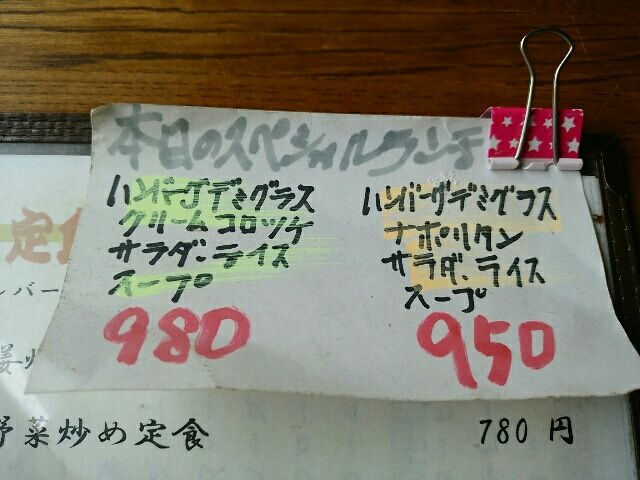 本日のスペシャルランチ
ハンバーグデミグラス
クリームコロッケ
サラダ、ライス
スープ
980
ハンバーグデミグラス
ナポリタン
サラダ、ライス
スープ
950
定食
ンバー
野菜炒め定食 780円